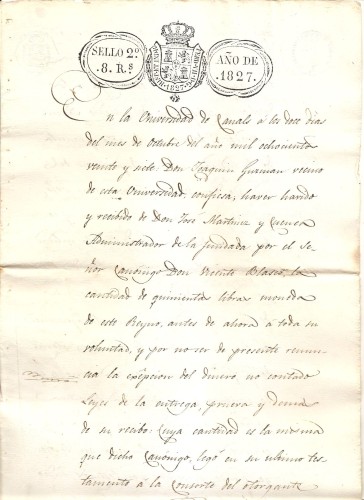 SELLO 2º
8. R.s
HISPANIARUM REX
1827
AÑO DE
1827.
En la Universidad de Canals a los doce dias
del mes de Octubre del año mil ochocientos
veinte y siete Don Joaquin Guzman vecino
de esta Universidad, confiesa, haver havido
y recibido de Don José Martinez y Cuenca
Administrador de la fundada por el se-
ñor Canónigo Don Vicente Blasco, la
cantidad de quinientas libras moneda
de este Reyno, antes de ahora á toda su
voluntad, y por no ser de presente renun-
cia la exẽpcion del dinero, no contado
Leyes de la entrega, prueva y demas
de su recibo: Cuya cantidad es la misma
que dicho Canónigo, legó en su ultimo tes-
tamento á la Consorte del otorgante